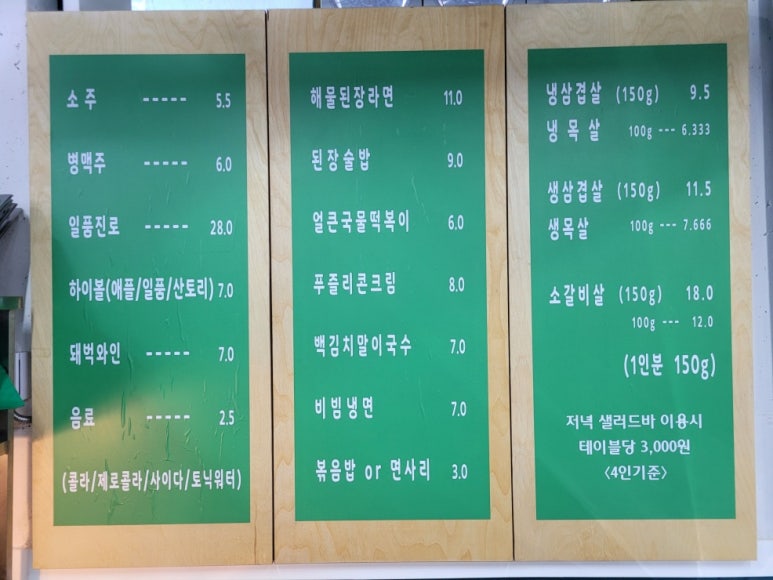 소주 ----- 5.5
병맥주 ----- 6.0
일품진로 ----- 28.0
하이볼(애플/일품/산토리) 7.0
돼벅와인 ----- 7.0
음료 ----- 2.5
(콜라/제로콜라/사이다/토닉워터)
해물된장라면 11.0
된장술밥 9.0
얼큰국물떡볶이 6.0
푸즐리콘크림 8.0
백김치말이국수 7.0
비빔냉면 7.0
볶음밥 or 면사리 3.0
냉삼겹살 (150g) 9.5
냉목살 100g --- 6.333
생삼겹살 (150g) 11.5
생목살 100g --- 7.666
소갈비살 (150g) 18.0
100g --- 12.0
(1인분 150g)
저녁 샐러드바 이용시
테이블당 3,000원
<4인기준>